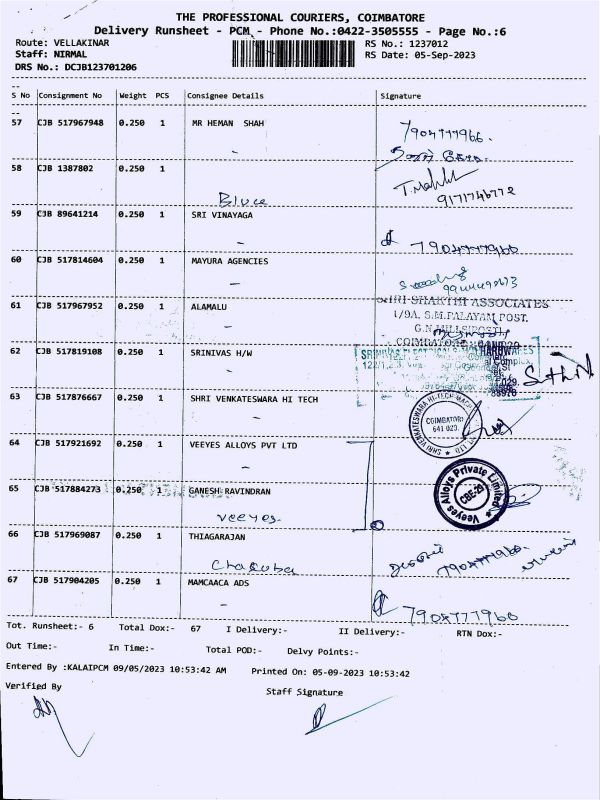 THE PROFESSIONAL COURIERS, COIMBATORE
Delivery Runsheet - PCM - Phone No.:0422-3505555 - Page No.:6
Route: VELLAKINAR RS No.: 1237012
Staff: NIRMAL RS Date: 05-Sep-2023
DRS No.: DCJB123701206
S No Consignment No Weight PCS Consignee Details Signature
57 CJB 517967948 0.250 1 MR HEMAN SHAH
7904777966.
58 CJB 1387802 0.250 1
9171746772
59 CJB 89641214 0.250 1 SRI VINAYAGA
7904777960
60 CJB 517814604 0.250 1 MAYURA AGENCIES
61 CJB 517967952 0.250 1 ALAMALU
SHRI SHAKTHI ASSOCIATES
1/9A, S.M.PALAYAM POST.
G.N.MILLS(POST)
62 CJB 517819108 0.250 1 SRINIVAS H/W
HARDWARES
63 CJB 517876667 0.250 1 SHRI VENKATESWARA HI TECH
COIMBATORE
641 029.
64 CJB 517921692 0.250 1 VEEYES ALLOYS PVT LTD
Veeyes Alloys Private Limited
CBE-29
65 CJB 517884273 0.250 1 GANESH RAVINDRAN
Veeyes
66 CJB 517969087 0.250 1 THIAGARAJAN
7904777960
67 CJB 517904205 0.250 1 MAMCAACA ADS
7904777960
Tot. Runsheet:- 6 Total Dox:- 67 I Delivery:- II Delivery:- RTN Dox:-
Out Time:- In Time:- Total POD:- Delvy Points:-
Entered By :KALAIPCM 09/05/2023 10:53:42 AM Printed On: 05-09-2023 10:53:42
Verified By Staff Signature